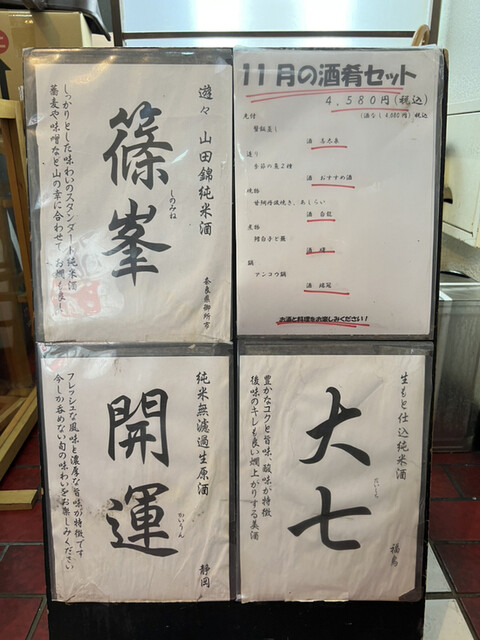 遊々 山田錦純米酒
篠峯
しのみね
奈良県御所市
しっかりとした味わいのスタンダード純米酒
蕎麦や味噌など山の幸に合わせてお燗も良し
11月の酒肴セット
4,580円(税込)
(酒なし4,000円)税込
先付
蟹飯蒸し
酒
造り
季節の魚2種
酒 おすすめ酒
焼物
甘鯛若狭焼き、あしらい
酒 白龍
煮物
鱈白子と蕪
酒
鍋
アンコウ鍋
酒
お酒と料理をお楽しみください!
純米無濾過生原酒
開運
かいうん
静岡
フレッシュな風味と濃厚な旨味が特徴です
今しか呑めない旬の味わいをお楽しみください
生もと仕込純米酒
大七
だいしち
福島
豊かなコクと旨味、酸味が特徴
後味のキレも良い燗上がりする美酒